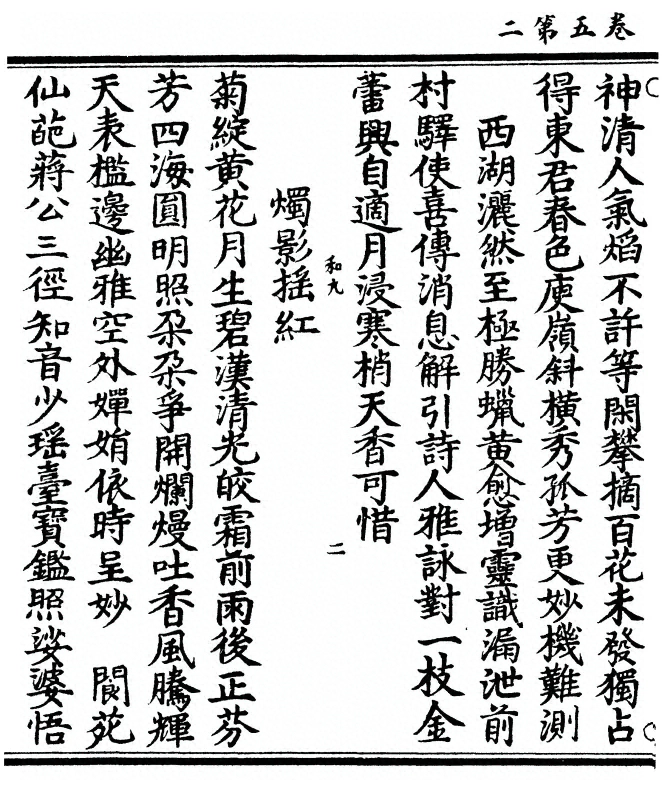 卷五第二
神清人氣焰不許等閑攀摘百花未發獨占
得東君春色庾嶺斜橫秀孤芳更妙機難測
西湖灑然至極勝蠟黃愈增靈識漏泄前
村驛使喜傳消息解引詩人雅詠對一枝金
蕾興自適月浸寒梢天香可惜
和九 二
燭影搖紅
菊綻黃花月生碧漢清光皎霜前雨後正芬
芳四海圓明照朶朶爭開爛熳吐香風騰輝
天表檻邊幽雅空外嬋娟依時呈妙 閬苑
仙葩蔣公三徑知音少瑶臺寶鑑照娑婆悟